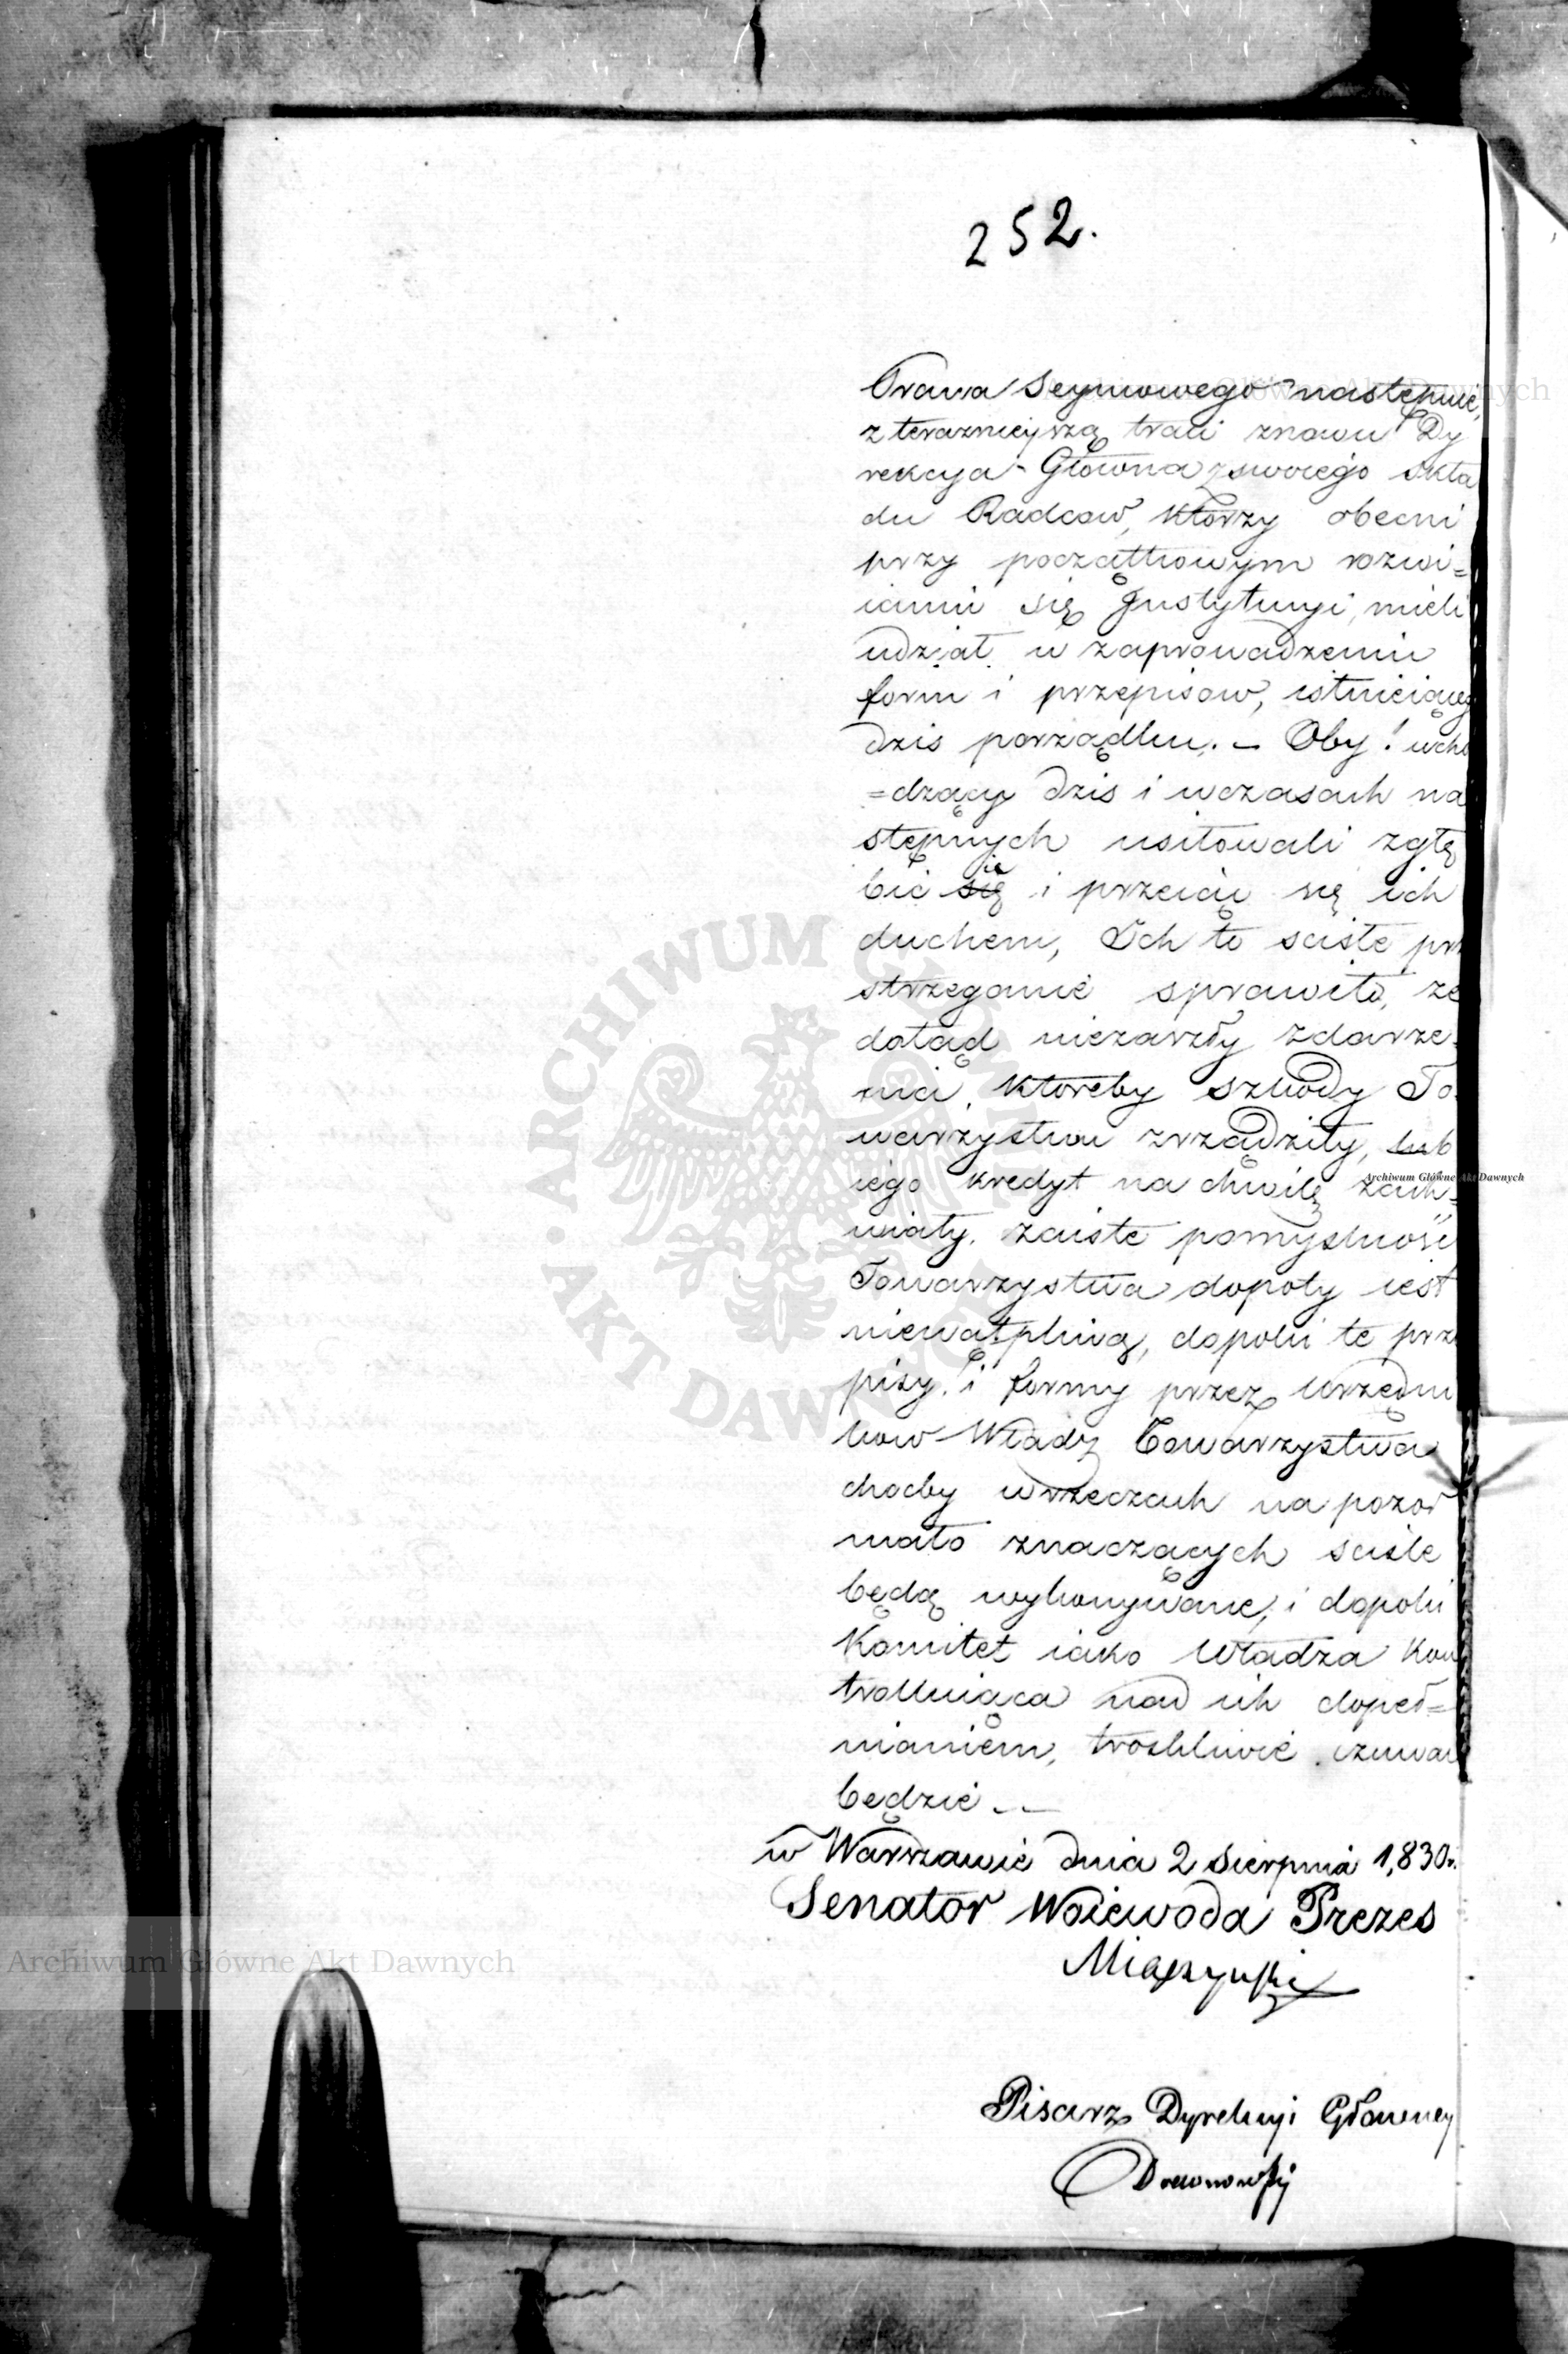 252.
Prawa Seymowego następuie,
z teraznieyszą traci znowu Dy
rekcya Główna z swoiego skła
du Radcow, ktorzy obecni
przy początkowym rozwi=
ianiu się Instytucyi, mieli
udział w zaprowadzeniu
form i przepisow, istnieiąceg
dzis porządku. – Oby! wcho
=dzący dzis i w czasach na
stępnych usiłowali zgłę
bić się ie i przeiąć się ich
duchem, Ich to scisłe prz
strzeganie sprawiło, ze
dotąd niezaszły zdarze=
nia, ktoreby szkody To=
warzystwu zrządziły, lub
iego kredyt na chwilę zach=
wiały. Zaiste pomyslność
Towarzystwa dopoty iest
niewątpliwą, dopoki te prze
pisy i formy przez urzędni
kow Władz Towarzystwa
choćby w rzeczach na pozor
mało znaczących sciśle
będą wykonywane, i dopoki
Komitet iako Władza Kon
trolluiąca nad ich dopeł=
nianiem, troskliwie czuwać
będzie. –
w Warszawie dnia 2 Sierpnia 1,830 r.
Senator Woiewoda Prezes
Miączyński
Pisarz Dyrekcyi Głowney
Drewnowski
ARCHIWUM GŁÓWNE AKT DAWNYCH
Archiwum Główne Akt Dawnych
Archiwum Główne Akt Dawnych
Archiwum Główne Akt Dawnych